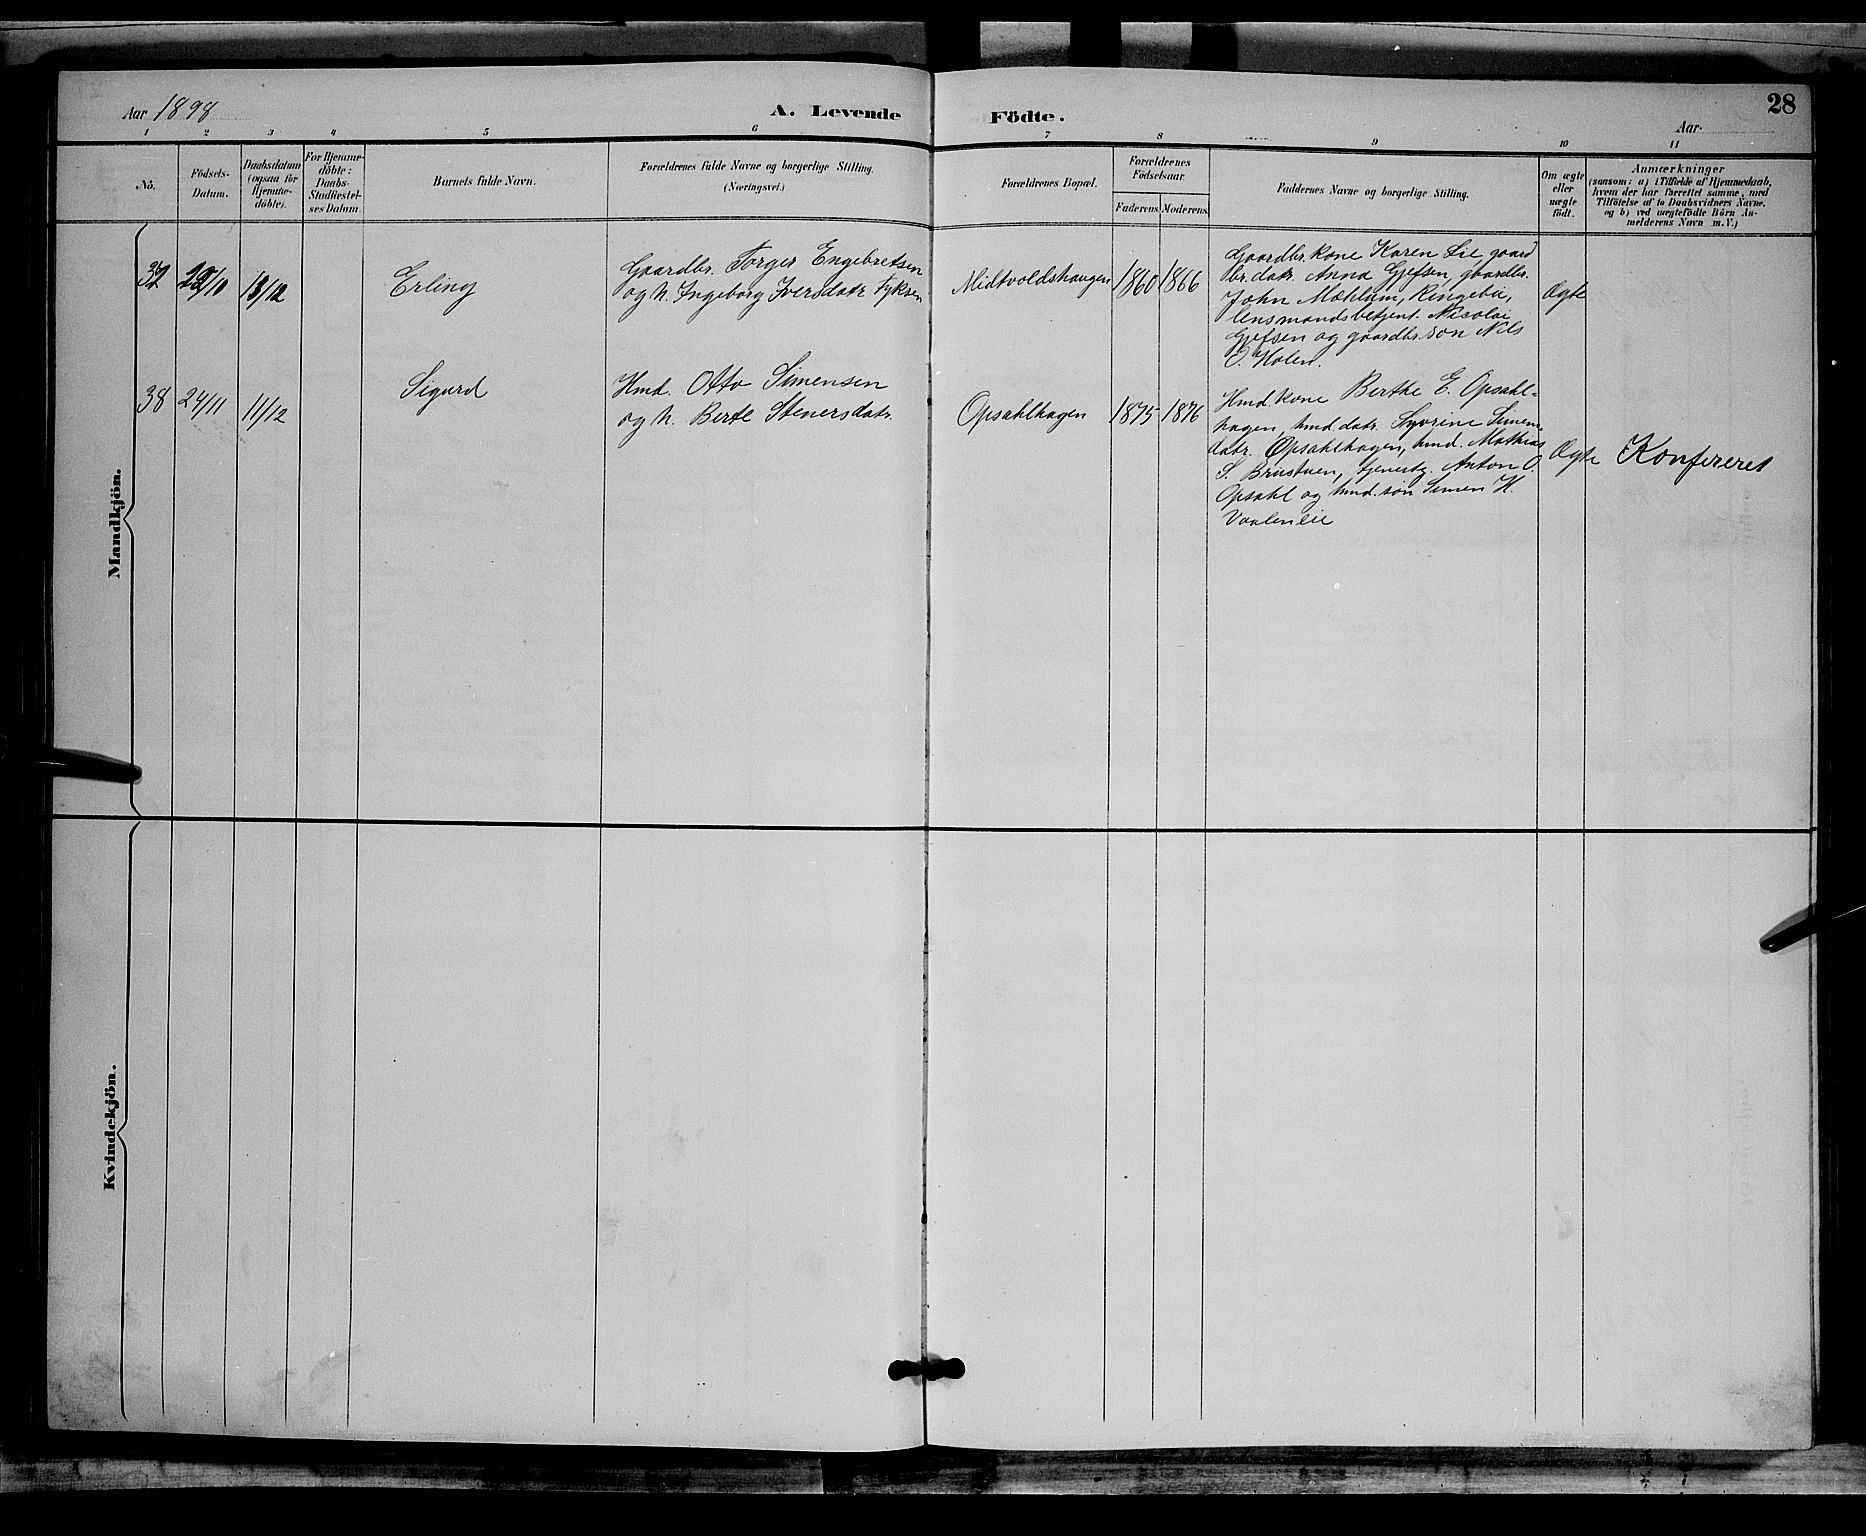 Aar 1898
A. Levende
Födte.
28
Aar
1 2 3 4 5 6 7 8 9 10 11
No.
Födsels-
Datum.
Daabsdatum
(ogsaa for
Hjemme-
döbte).
For Hjemme-
döbte:
Daabs-
Stadfæstel-
ses Datum.
Barnets fulde Navn.
Forældrenes fulde Navne og borgerlige Stilling.
(Næringsvei.)
Forældrenes Bopæl.
Forældrenes
Födselsaar.
Faderens. Moderens.
Faddernes Navne og borgerlige Stilling.
Om ægte
eller
uægte
födt.
Anmærkninger
(saasom: a) i Tilfælde af Hjemmedaab,
hvem der har forrettet samme, med
Tilföielse af to Daabsvidners Navne.
og b) ved uægtefödte Börn An-
melderens Navn m.V.)
Mandkjön.
37
13/12
Erling
Gaardbr. Torger Engebretsen
og h. Ingeborg Iversdatr Fyksen
Midtvoldshaugen
1860 1866
Gaardbr. kone Karen Lie, gaard
br. datr. Anna Gjefsen, gaardbr.
John Mæhlum, Ringebu,
lensmandsbetjent Nicolai
Gjefsen og gaardbr. søn Nils
O. Holen.
Ægte
38
24/11
11/12
Sigurd
Hmd. Otto Simensen
og h. Berte Stenersdatr.
Opsahlhagen
1875 1876
Hmd. kone Berthe E. Opsahl-
hagen, hmd. datr. Syverine Simens
datr. Opsahlhagen, hmd. Mathias
S. Brustuen, tjenestg. Anton O.
Opsahl og hmd. søn Simen H.
Vaaleneie
Ægte
Konfereret
Kvindekjön.